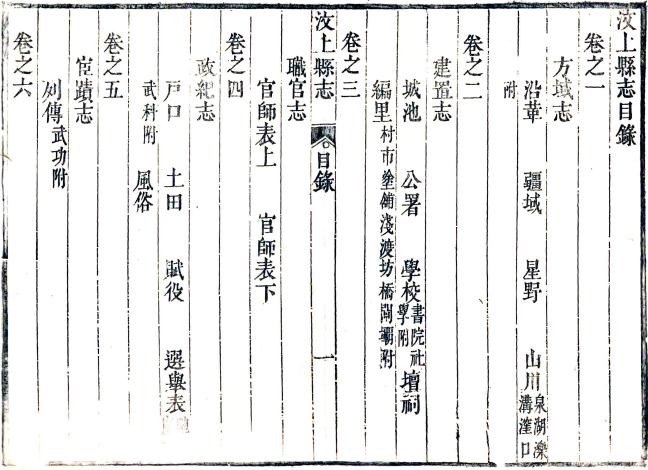 汶上縣志目錄
卷之一
方域志
沿革 疆域 星野 山川泉湖濼溝漥口
附
卷之二
建置志
城池 公署 學校書院社學附 壇祠
編里村市塗舖淺渡坊橋閘壩附
卷之三
汶上縣志 目錄 一
職官志
官師表上 官師表下
卷之四
政紀志
戸口 土田 賦役 選舉表
武科附 風俗
卷之五
宦蹟志
列傳武功附
卷之六